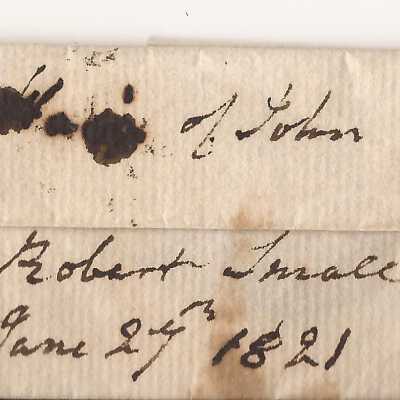 of John
Robert Small
June 27th 1821